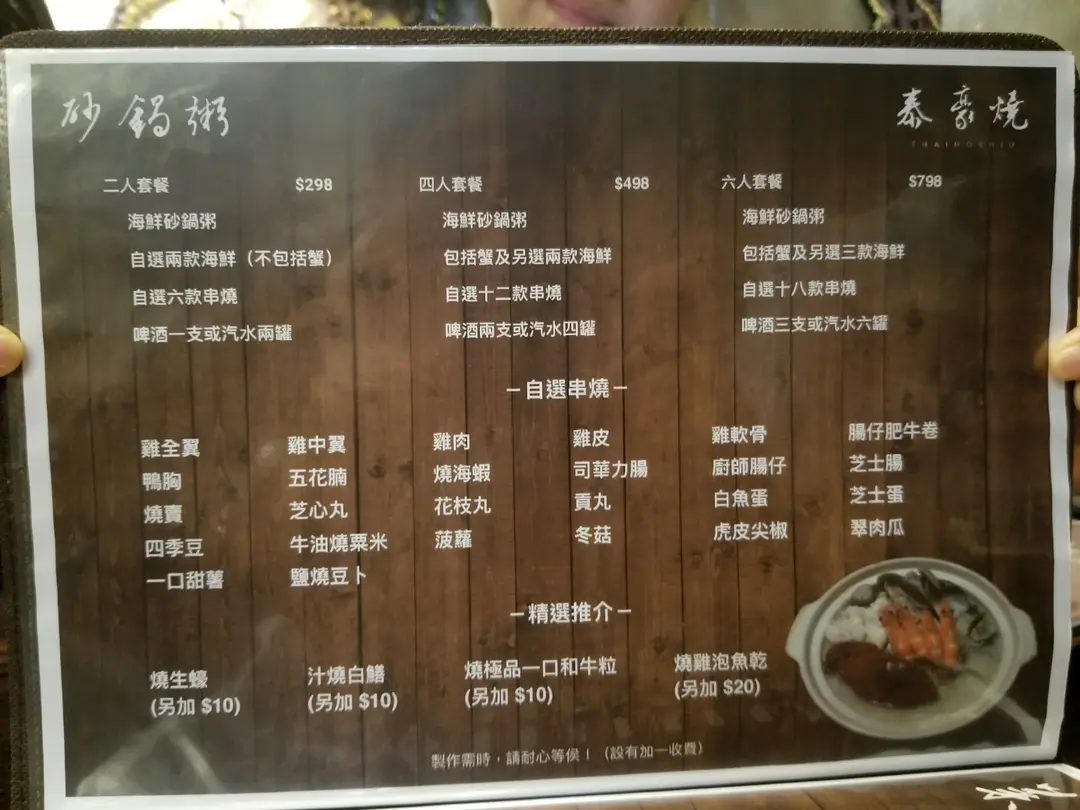 砂鍋粥
泰豪燒
二人套餐 $298
海鮮砂鍋粥
自選兩款海鮮（不包括蟹）
自選六款串燒
啤酒一支或汽水兩罐
四人套餐 $498
海鮮砂鍋粥
包括蟹及另選兩款海鮮
自選十二款串燒
啤酒兩支或汽水四罐
六人套餐 $798
海鮮砂鍋粥
包括蟹及另選三款海鮮
自選十八款串燒
啤酒三支或汽水六罐
－自選串燒－
雞全翼 雞中翼 雞肉 雞皮 雞軟骨 腸仔肥牛卷
鴨胸 五花腩 燒海蝦 司華力腸 廚師腸仔 芝士腸
燒賣 芝心丸 花枝丸 貢丸 白魚蛋 芝士蛋
四季豆 牛油燒粟米 菠蘿 冬菇 虎皮尖椒 翠肉瓜
一口甜薯 鹽燒豆卜
－精選推介－
燒生蠔 汁燒白鱔 燒極品一口和牛粒 燒雞泡魚乾
(另加 $10) (另加 $10) (另加 $10) (另加 $20)
製作需時，請耐心等侯！（設有加一收費）